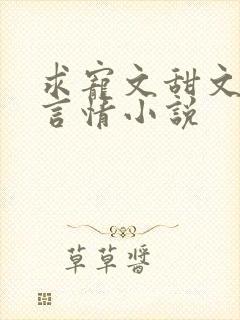 求寵文甜文
言情小說
草草醬